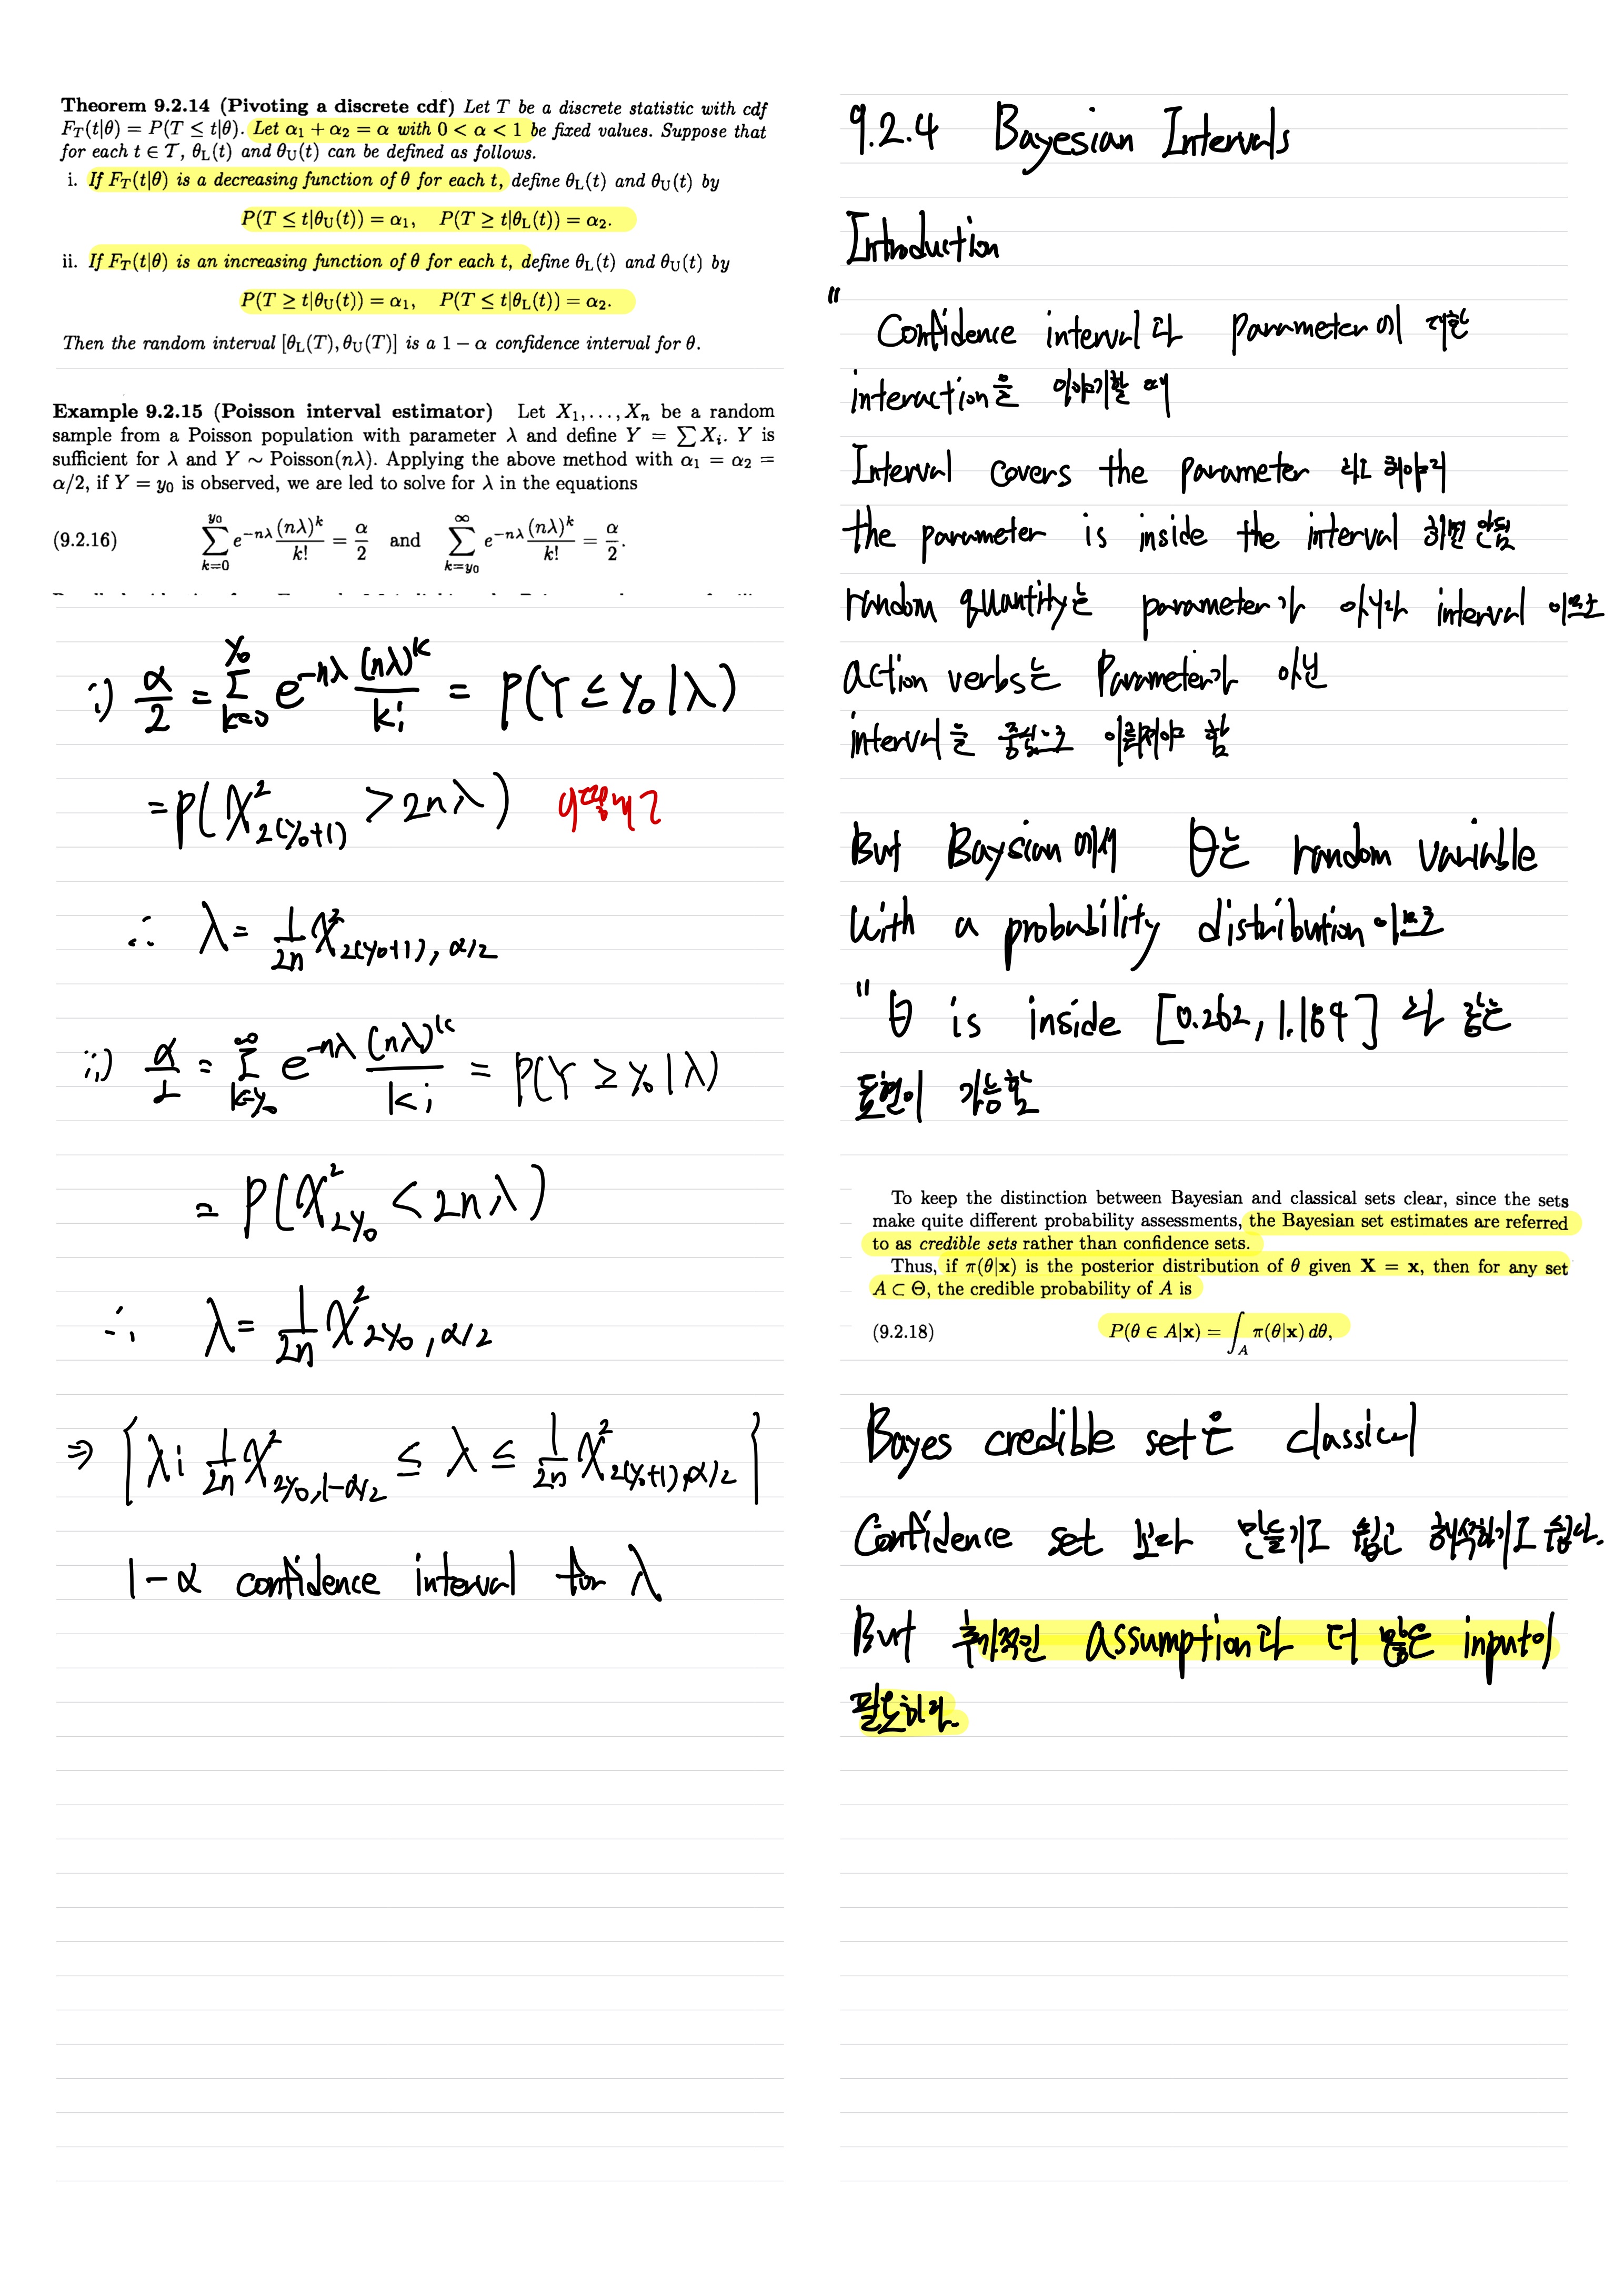 Theorem 9.2.14 (Pivoting a discrete cdf) Let T be a discrete statistic with cdf
F_T(t|θ) = P(T ≤ t|θ). Let α₁ + α₂ = α with 0 < α < 1 be fixed values. Suppose that
for each t ∈ 𝒯, θ_L(t) and θ_U(t) can be defined as follows.
i. If F_T(t|θ) is a decreasing function of θ for each t, define θ_L(t) and θ_U(t) by
P(T ≤ t|θ_U(t)) = α₁, P(T ≥ t|θ_L(t)) = α₂.
ii. If F_T(t|θ) is an increasing function of θ for each t, define θ_L(t) and θ_U(t) by
P(T ≥ t|θ_U(t)) = α₁, P(T ≤ t|θ_L(t)) = α₂.
Then the random interval [θ_L(T), θ_U(T)] is a 1 − α confidence interval for θ.
Example 9.2.15 (Poisson interval estimator) Let X₁, . . . , Xₙ be a random
sample from a Poisson population with parameter λ and define Y = ∑ Xᵢ. Y is
sufficient for λ and Y ∼ Poisson(nλ). Applying the above method with α₁ = α₂ =
α/2, if Y = y₀ is observed, we are led to solve for λ in the equations
(9.2.16) ∑_{k=0}^{y₀} e^{−nλ} (nλ)^k / k! = α/2 and ∑_{k=y₀}^{∞} e^{−nλ} (nλ)^k / k! = α/2.
i) α/2 = ∑_{k=0}^{y₀} e^{-nλ} (nλ)^k / k! = P(Y ≤ y₀ | λ)
= P(χ²_{2(y₀+1)} > 2nλ) 어떻게?
∴ λ = 1/2n χ²_{2(y₀+1), α/2}
ii) α/2 = ∑_{k=y₀}^{∞} e^{-nλ} (nλ)^k / k! = P(Y ≥ y₀ | λ)
= P(χ²_{2y₀} < 2nλ)
∴ λ = 1/2n χ²_{2y₀, α/2}
⇒ {λ: 1/2n χ²_{2y₀, 1-α/2} ≤ λ ≤ 1/2n χ²_{2(y₀+1), α/2}}
1-α confidence interval for λ
9.2.4 Bayesian Intervals
Introduction
" Confidence interval과 parameter에 대한
interaction을 이야기할 때
Interval covers the parameter 라고 해야지
the parameter is inside the interval 하면 안됨
random quantity는 parameter가 아니라 interval 이므로
action verbs는 Parameter가 아닌
interval을 중심으로 이뤄져야 함
But Baysian에서 θ는 random variable
with a probability distribution이므로
" θ is inside [0.262, 1.184] 와 같은
표현이 가능함
To keep the distinction between Bayesian and classical sets clear, since the sets
make quite different probability assessments, the Bayesian set estimates are referred
to as credible sets rather than confidence sets.
Thus, if π(θ|x) is the posterior distribution of θ given X = x, then for any set
A ⊂ Θ, the credible probability of A is
(9.2.18) P(θ ∈ A|x) = ∫_A π(θ|x) dθ,
Bayes credible set는 classical
Confidence set 보다 만들기도 쉽고 해석하기도 쉽다.
But 추가적인 assumption과 더 많은 input이
필요하다.